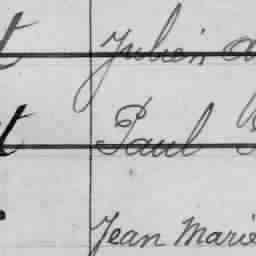 Julien
Paul
Jean Marie